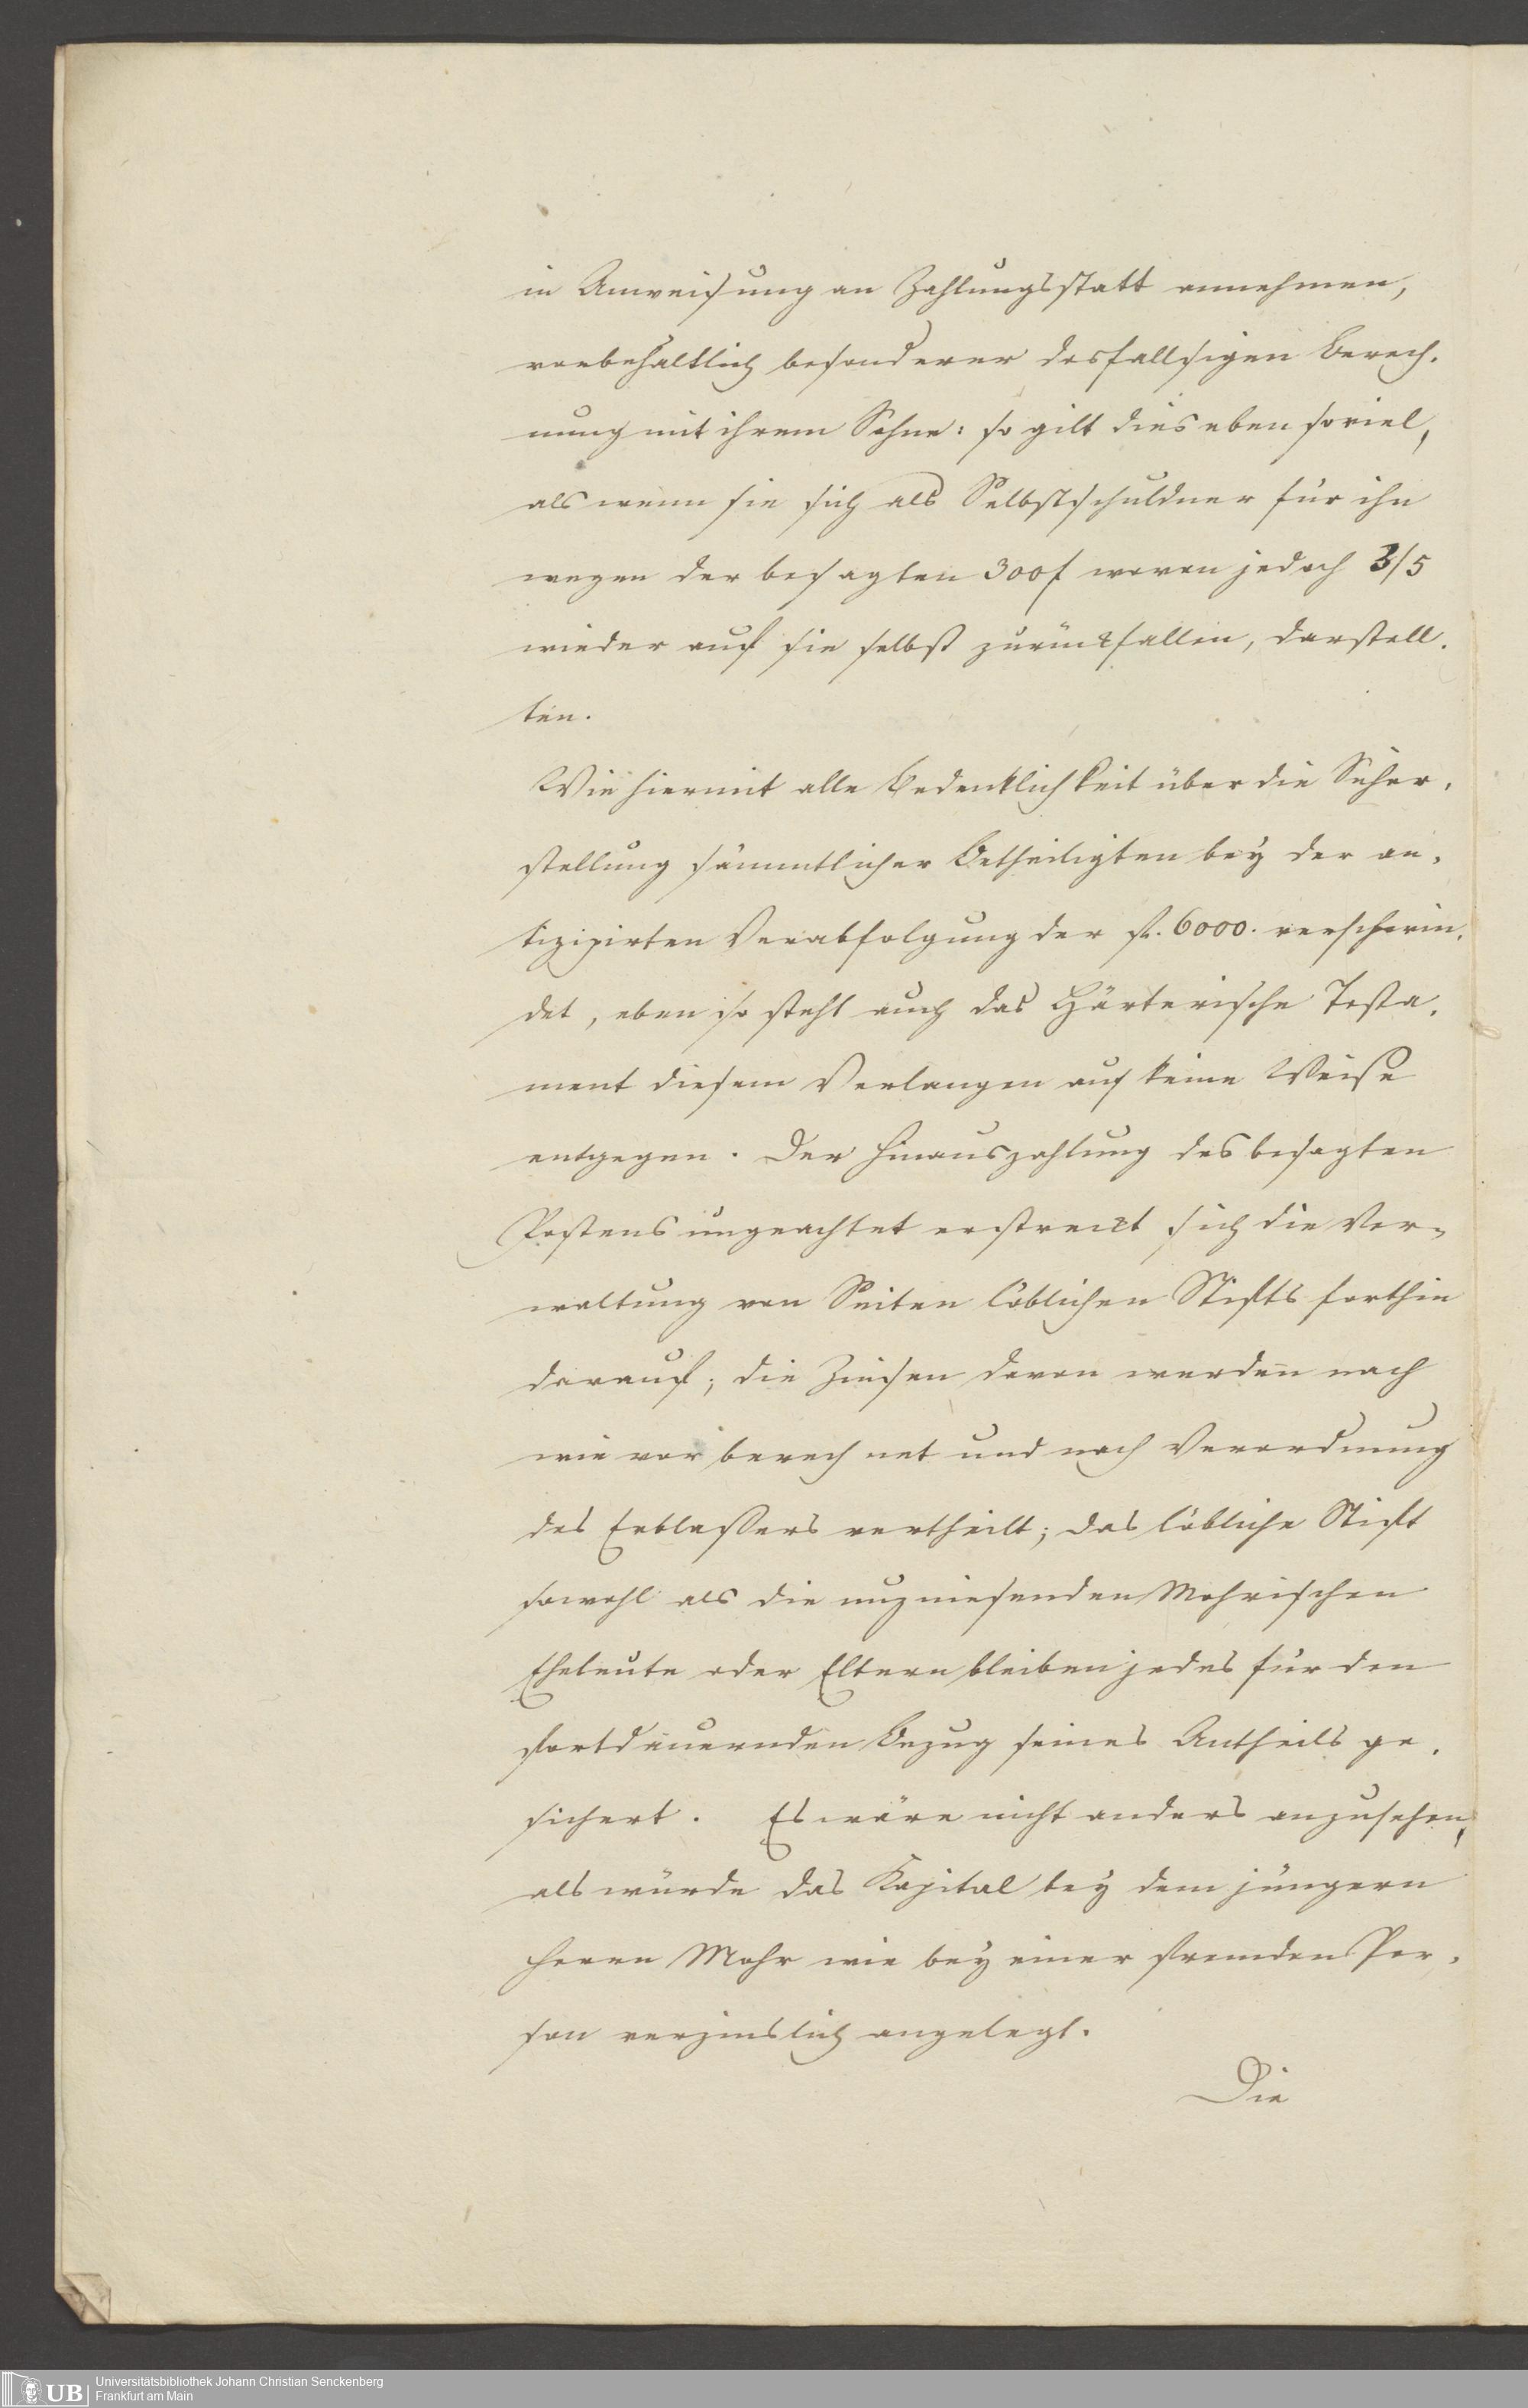 in Anweisung an Zahlungsstatt annehmen,
vorbehaltlich besonderer desfallsigen Berech-
nung mit ihrem Sohne: so gilt dies eben soviel,
als wenn sie sich als Selbstschuldner für ihn
wegen der besagten 300f wovon jedoch 3/5
wieder auf sie selbst zurückfallen, darstell-
ten.
Wie hiermit alle Bedenklichkeit über die Sicher-
stellung sämmtlicher Betheiligten bey der an-
tizipirten Verabfolgung der fl. 6000. verschwin-
det, eben so steht auch das Härterische Testa-
ment diesem Verlangen auf keine Weise
entgegen. Der Hinauszahlung des besagten
Postens ungeachtet erstreckt sich die Ver-
waltung von Seiten löblichen Stifts forthin
darauf; die Zinsen davon werden nach
wie vor berechnet und nach Verordnung
des Erblaßers vertheilt; das löbliche Stift
sowohl als die nuzniesenden Mohrischen
Eheleute oder Eltern bleiben jedes für den
fortdauernden Bezug seines Antheils ge-
sichert. Es wäre nicht anders anzusehen,
als würde das Kapital bey dem jüngern
Herrn Mohr wie bey einer fremden Per-
son verzinslich angelegt.
Die
UB Universitätsbibliothek Johann Christian Senckenberg
Frankfurt am Main